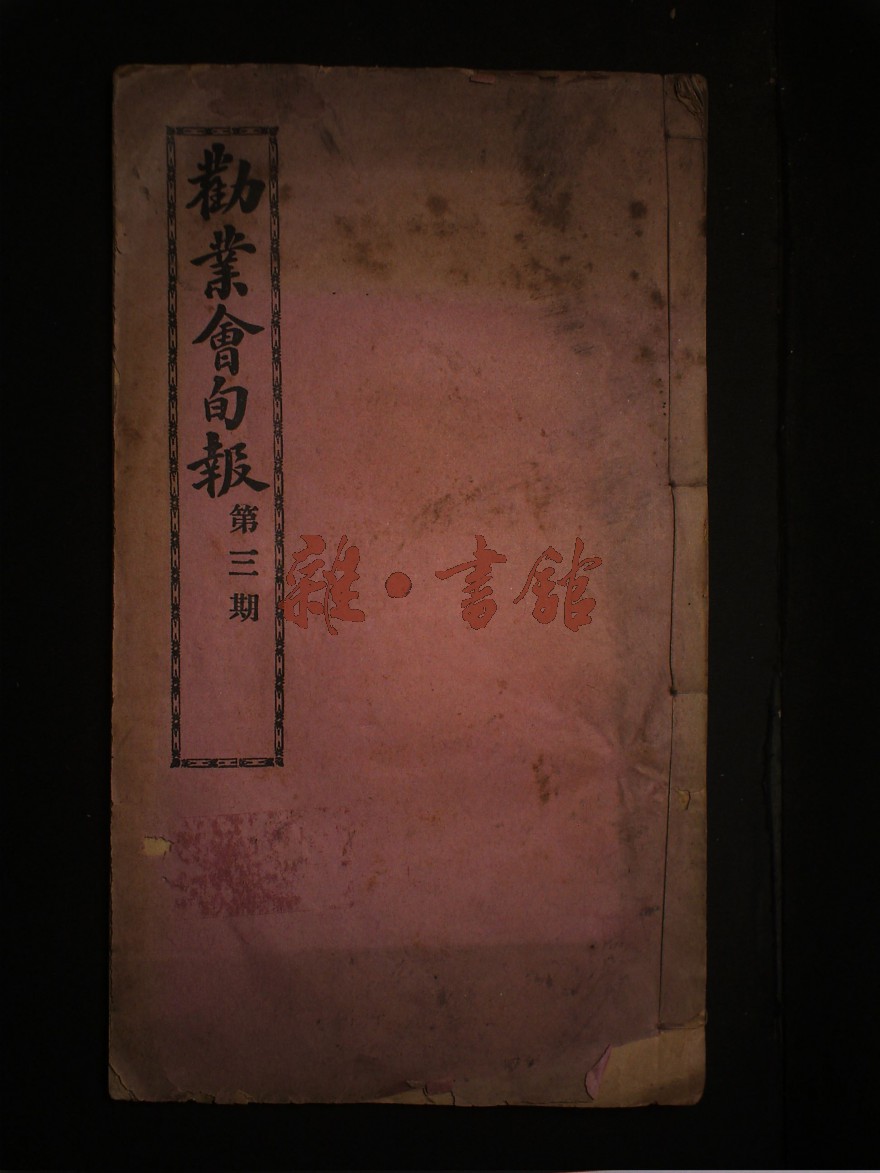 勸業會旬報
第三期
雜·書館